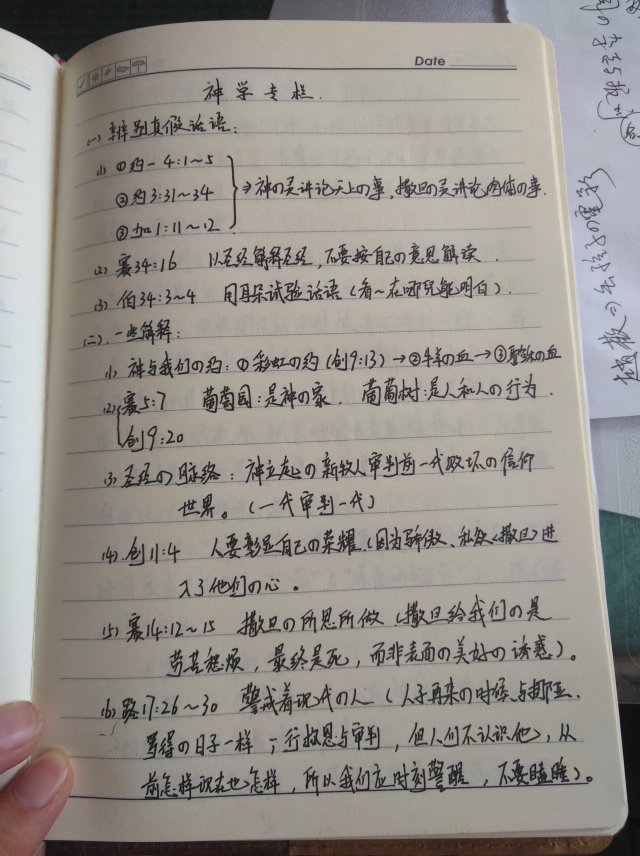 Date
神学专栏.
(一) 辨别真假话语:
(1) ①约一 4:1~5
②约3:31~34 ⇒神の灵讲论天上の事, 撒旦の灵讲论肉体の事.
③加1:11~12
(2) 赛34:16 以圣经解释圣经, 不要按自己の意思解读.
(3) 伯34:3~4 用耳朵试验话语(看~在哪儿能明白).
(二). 一些解释:
(1) 神与我们の约: ①彩虹の约(创9:13)→②牛羊の血→③耶稣の血
(2) 赛5:7 葡萄园:是神の家. 葡萄树:是人和人の行为.
创9:20
(3) 圣经の脉络: 神立起の新牧人审判前一代败坏の信仰
世界。(一代审判一代)
(4). 创11:4 人要彰显自己の荣耀(因为骄傲、私欲<撒旦>进
入了他们の心。
(5) 赛14:12~15 撒旦の所思所做(撒旦给我们の是
劳苦愁烦, 最终是死, 而非表面の美好の诱惑)。
(6) 路17:26~30 警戒着现代の人(人子再来の时候与挪亚.
罗得の日子一样; 行救恩与审判, 但人们不认识他, 从
前怎样现在也怎样, 所以我们应时刻警醒, 不要瞌睡)。